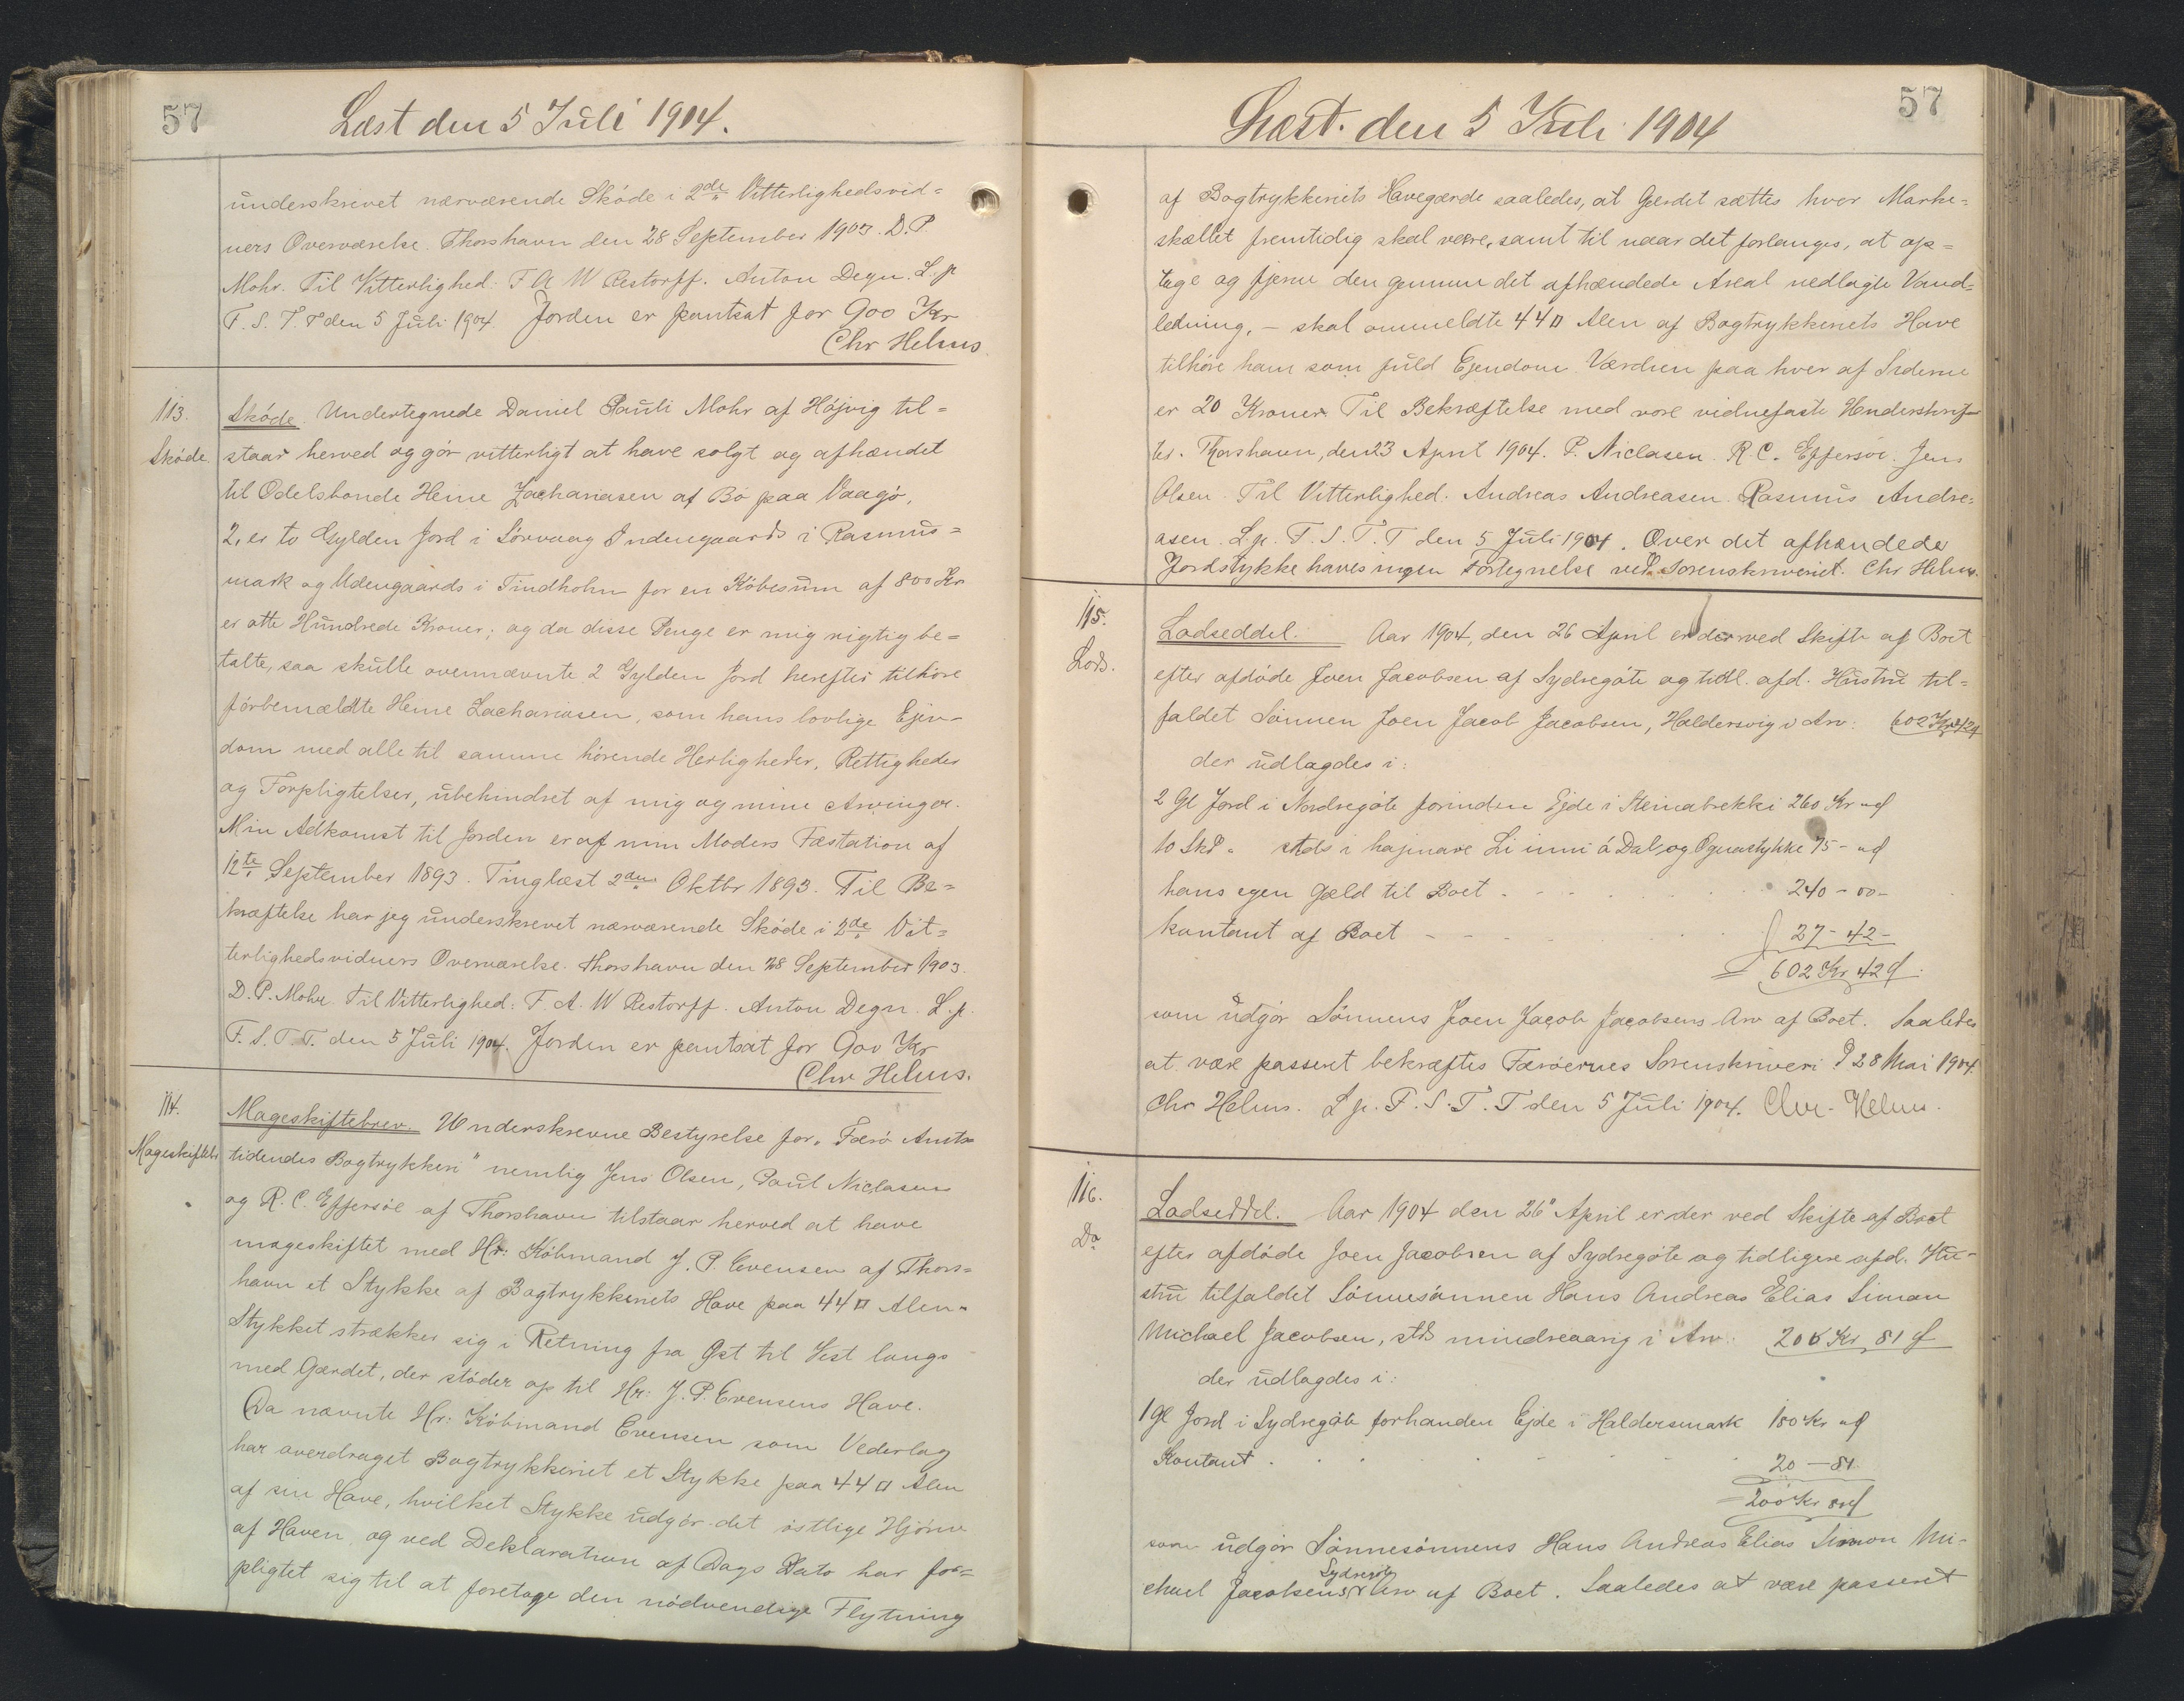 57
Læst den 5 Juli 1904.
underskrevet nærværende Skóde i 2de Vitterlighedsvid=
ners Overværelse. Thorshavn den 28 September 1903. D. P.
Mohr. Til Vitterlighed: F A W Restorff. Anton Degn. L. p.
F. S. T. T den 5 Juli 1904. Jorden er pantsat for 900 Kr
Chr Helms.
113.
Skóde.
Skóde. Undertegnede Daniel Pauli Mohr af Hójvig til=
staar herved og gór vitterligt at have solgt og afhændet
til Odelsbonde Heine Zachariasen af Bó paa Vaagó,
2, er to Gylden Jord i Sórvaag Indengaards i Rasmus=
mark og Udengaards i Tindholm for en Kóbesum af 800 Kr
er otte Hundrede Kroner; og da disse Penge er mig rigtig be=
talte, saa skulle ovennævnte 2 Gylden Jord herefter tilhóre
fórbemældte Heine Zachariasen, som hans lovlige Ejen-
dom med alle til samme hórende Herligheder, Rettigheder
og Forpligtelser, ubehindret af mig og mine Arvinger.
Min Adkomst til Jorden er af min Moders Tæstation af
12te September 1893. Tinglæst 2den Oktbr 1893. Til Be=
kræftelse har jeg underskrevet nærværende Skóde i 2de Vit=
terlighedsvidners Overværelse. Thorshavn den 28 September 1903.
D. P. Mohr. Til Vitterlighed: F. A. W Restorff. Anton Degn. L. p.
F. S. T. T. den 5 Juli 1904. Jorden er pantsat for 900 Kr
Chr Helms.
114.
Mageskiftebr.
Mageskiftebrev. Underskrevne Bestyrelse for „Færó Amts=
tidendes Bogtrykkeri" nemlig Jens Olsen, Poul Niclasen
og R. C. Effersóe af Thorshavn tilstaar herved at have
mageskiftet med Hr: Kóbmand J. P. Evensen af Thors=
havn et Stykke af Bogtrykkeriets Have paa 44 □ Alen.
Stykket strækker sig i Retning fra Øst til Vest langs
med Gærdet, der stóder op til Hr: J. P. Evensens Have.
Da nævnte Hr: Kóbmand Evensen som Vederlag
har overdraget Bogtrykkeriet et Stykke paa 44 □ Alen
af sin Have, hvilket Stykke udgór det óstlige Hjórne
af Haven, og ved Deklaration af Dags Dato har for=
pligtet sig til at foretage den nódvendige Flytning
57
Læst. den 5 Juli 1904
af Bogtrykkeriets Havegærde saaledes, at Gærdet sættes hvor Marke=
skællet fremtidig skal være, samt til naar det forlanges, at op=
tage og fjerne den gennem det afhændede Areal nedlagte Vand=
ledning, – skal ommeldte 44 □ Alen af Bogtrykkeriets Have
tilhóre ham som fuld Ejendom. Værdien paa hver af Siderne
er 20 Kroner. Til Bekræftelse med vore vidnefaste Underskrif=
ter. Thorshavn, den 23 April 1904. P. Niclasen. R. C. Effersóe. Jens
Olsen. Til Vitterlighed: Andreas Andreasen. Rasmus Andre=
asen. L. p. F. S. T. T den 5 Juli 1904. Over det afhændede
Jordstykke haves ingen Fortegnelse ved Sorenskriveriet. Chr Helms.
115.
Lods.
Lodseddel. Aar 1904, den 26 April er der ved Skifte af Boet
efter afdóde Joen Jacobsen af Sydregóte og tidl. afd. Hustru til=
faldet Sónnen Joen Jacob Jacobsen, Haldersvig i Arv: 602 Kr 42
der udlagdes i:
2 Gl Jord i Nordregóte forinden Ejde i Steinabrekki 260 Kr
10 Skd. stds i hajnare Li inni á Dal og Ognartykke 75 –
hans egen Gæld til Boet 240 – 00 –
kontant af Boet 27 – 42 –
= 602 Kr 42
som udgór Sónnens Joen Jacob Jacobsens Arv af Boet. Saaledes
at være passeret bekræftes Færóernes Sorenskriveri d 28 Mai 1904.
Chr Helms. L p. F. S. T. T den 5 Juli 1904. Chr. Helms.
116.
Do
Lodseddel. Aar 1904 den 26" April er der ved Skifte af Boet
efter afdóde Joen Jacobsen af Sydregóte og tidligere afd. Hu-
stru tilfaldet Sónnesónnen Hans Andreas Elias Simon
Michael Jacobsen, stds mindreaarig i Arv: 200 Kr 81
der udlagdes i:
1 Gl Jord i Sydregóte forhanden Ejde i Haldersmark 180 Kr
Kontant 20 – 81
= 200 Kr 81
som udgór Sónnesónnens Hans Andreas Elias Simon Mi-
chael Jacobsens Arv af Boet. Saaledes at være passeret